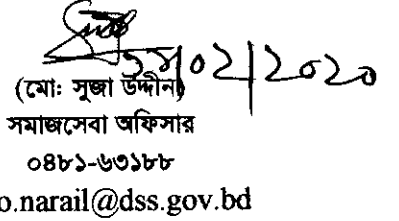 ০২/২০২০
(মোঃ সুজা উদ্দীন)
সমাজসেবা অফিসার
০৪৮১-৬৩১৮৮
o.narail@dss.gov.bd